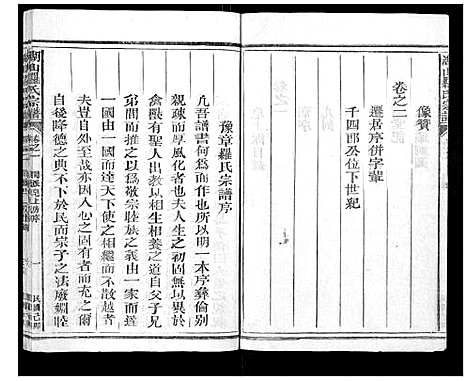 湖山羅氏宗譜
像贊
卷之二
遷居序併字輩
千四郎公位下世紀
豫章羅氏宗譜序
凡吾譜書何為而作也所以明一本序彝倫别
親疏而厚風化者也夫人之初固無以異於
禽獸有聖人出教以相生相養之道自父子兄
弟間而推之以為敬宗睦族之義由一家而達
一國由一國而達天下使之相維而不散越者
夫豈自外至哉亦因人心之固有者而充之爾
後者降德之典不下於民而宗子之法廢婣睦
湖山羅氏宗譜
卷之一
一
民國己卯